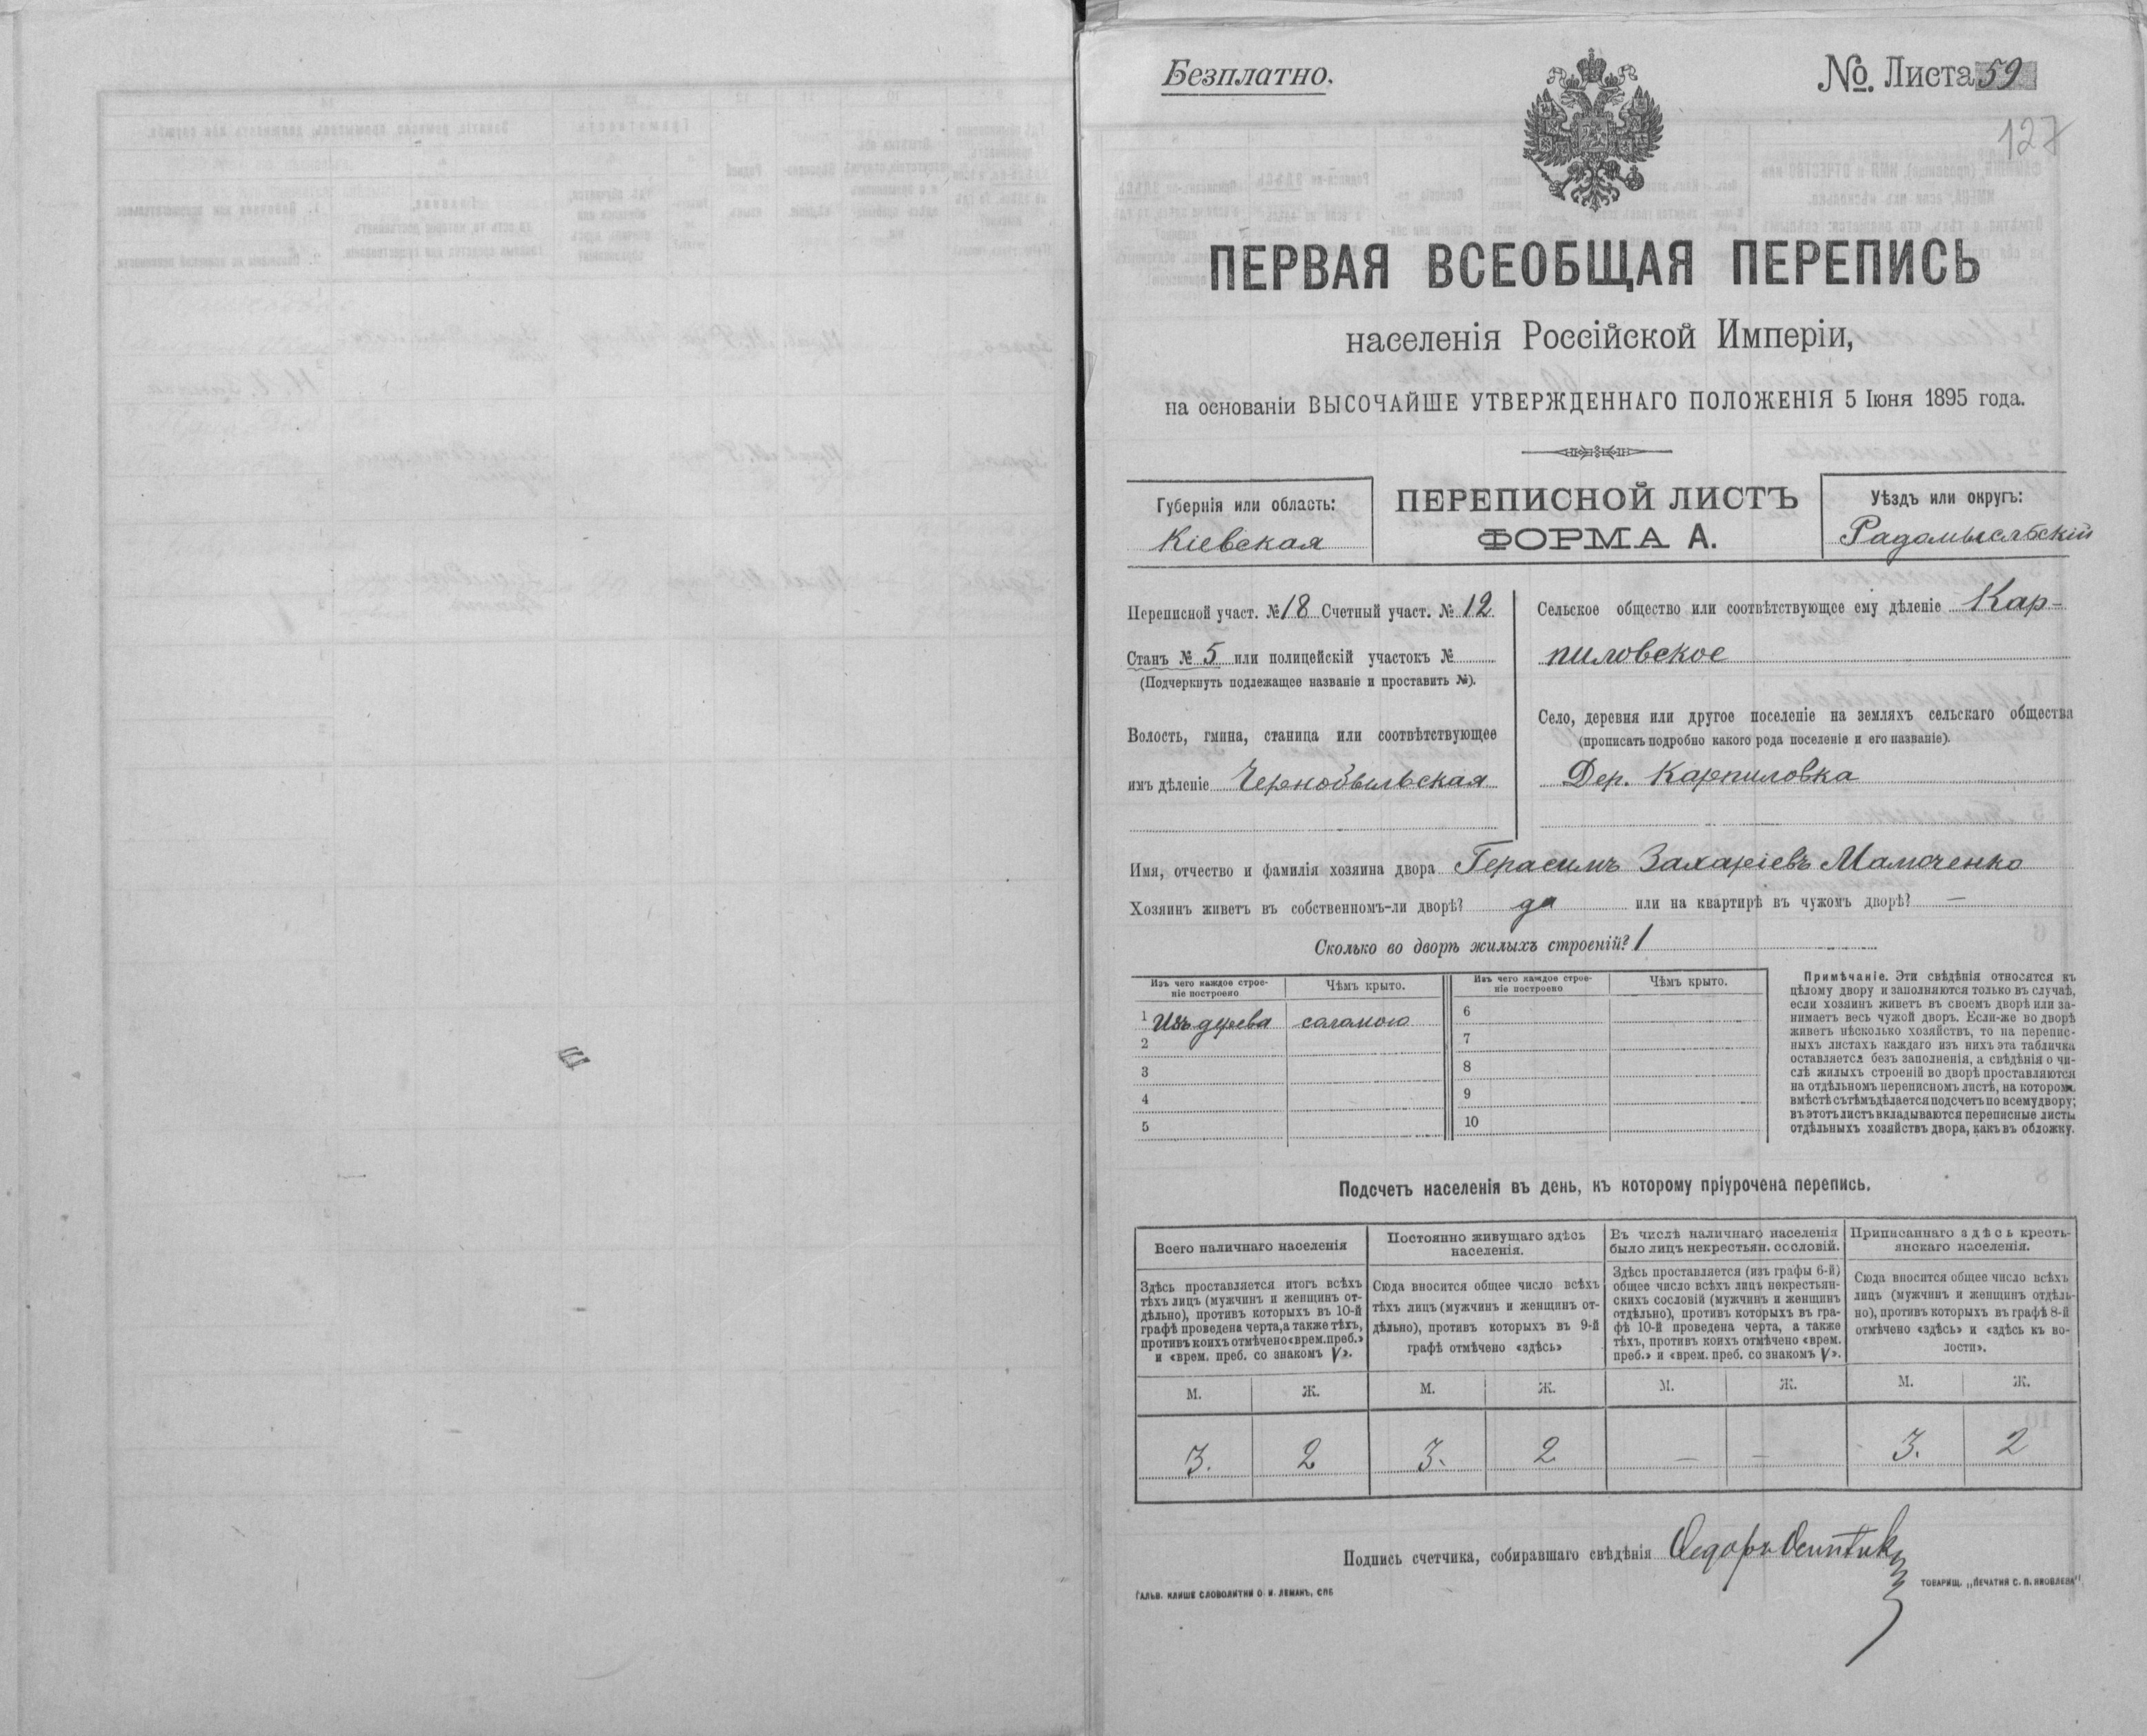 Безплатно.
№. Листа 59
127
ПЕРВАЯ ВСЕОБЩАЯ ПЕРЕПИСЬ
населенія Россійской Имперіи,
на основаніи ВЫСОЧАЙШЕ УТВЕРЖДЕННАГО ПОЛОЖЕНІЯ 5 Іюня 1895 года.
Губернія или область:
Кіевская
ПЕРЕПИСНОЙ ЛИСТЪ
ФОРМА А.
Уѣздъ или округъ:
Радомысльскій
Переписной участ. № 18 Счетный участ. № 12
Станъ № 5 или полицейскій участокъ №
(Подчеркнуть подлежащее названіе и проставить №).
Волость, гмина, станица или соотвѣтствующее
имъ дѣленіе Чернобыльская
Сельское общество или соотвѣтствующее ему дѣленіе Кар-
пиловское
Село, деревня или другое поселеніе на земляхъ сельскаго общества
(прописать подробно какого рода поселеніе и его названіе).
Дер. Карпиловка
Имя, отчество и фамилія хозяина двора Герасимъ Захаріевъ Мамоченко
Хозяинъ живетъ въ собственномъ-ли дворѣ? да или на квартирѣ въ чужомъ дворѣ? —
Сколько во дворѣ жилыхъ строеній? 1
Изъ чего каждое строе-
ніе построено
Чѣмъ крыто.
Изъ чего каждое строе-
ніе построено
Чѣмъ крыто.
1 Изъ дерева соломою
2
3
4
5
6
7
8
9
10
Примѣчаніе. Эти свѣдѣнія относятся къ
цѣлому двору и заполняются только въ случаѣ,
если хозяинъ живетъ въ своемъ дворѣ или за-
нимаетъ весь чужой дворъ. Если-же во дворѣ
живетъ нѣсколько хозяйствъ, то на перепис-
ныхъ листахъ каждаго изъ нихъ эта табличка
оставляется безъ заполненія, а свѣдѣнія о чи-
слѣ жилыхъ строеній во дворѣ проставляются
на отдѣльномъ переписномъ листѣ, на которомъ
вмѣстѣ съ тѣмъ дѣлается подсчетъ по всему двору;
въ этотъ листъ вкладываются переписные листы
отдѣльныхъ хозяйствъ двора, какъ въ обложку.
Подсчетъ населенія въ день, къ которому пріурочена перепись.
Всего наличнаго населенія
Здѣсь проставляется итогъ всѣхъ
тѣхъ лицъ (мужчинъ и женщинъ от-
дѣльно), противъ которыхъ въ 10-й
графѣ проведена черта, а также тѣхъ,
противъ коихъ отмѣчено «врем. преб.»
и «врем. преб. со знакомъ V».
Постоянно живущаго здѣсь
населенія.
Сюда вносится общее число всѣхъ
тѣхъ лицъ (мужчинъ и женщинъ от-
дѣльно), противъ которыхъ въ 9-й
графѣ отмѣчено «здѣсь»
Въ числѣ наличнаго населенія
было лицъ некрестьян. сословій.
Здѣсь проставляется (изъ графы 6-й)
общее число всѣхъ лицъ некрестьян-
скихъ сословій (мужчинъ и женщинъ
отдѣльно), противъ которыхъ въ гра-
фѣ 10-й проведена черта, а также
тѣхъ, противъ коихъ отмѣчено «врем.
преб.» и «врем. преб. со знакомъ V».
Приписаннаго здѣсь кресть-
янскаго населенія.
Сюда вносится общее число всѣхъ
лицъ (мужчинъ и женщинъ отдѣль-
но), противъ которыхъ въ графѣ 8-й
отмѣчено «здѣсь» и «здѣсь къ во-
лости».
М. Ж. М. Ж. М. Ж. М. Ж.
3. 2 3. 2 — — 3. 2
Подпись счетчика, собиравшаго свѣдѣнія Ѳедоръ
ГАЛЬВ. КЛИШЕ СЛОВОЛИТНИ О. И. ЛЕМАНЪ, СПБ
ТОВАРИЩ. „ПЕЧАТНЯ С. П. ЯКОВЛЕВА"